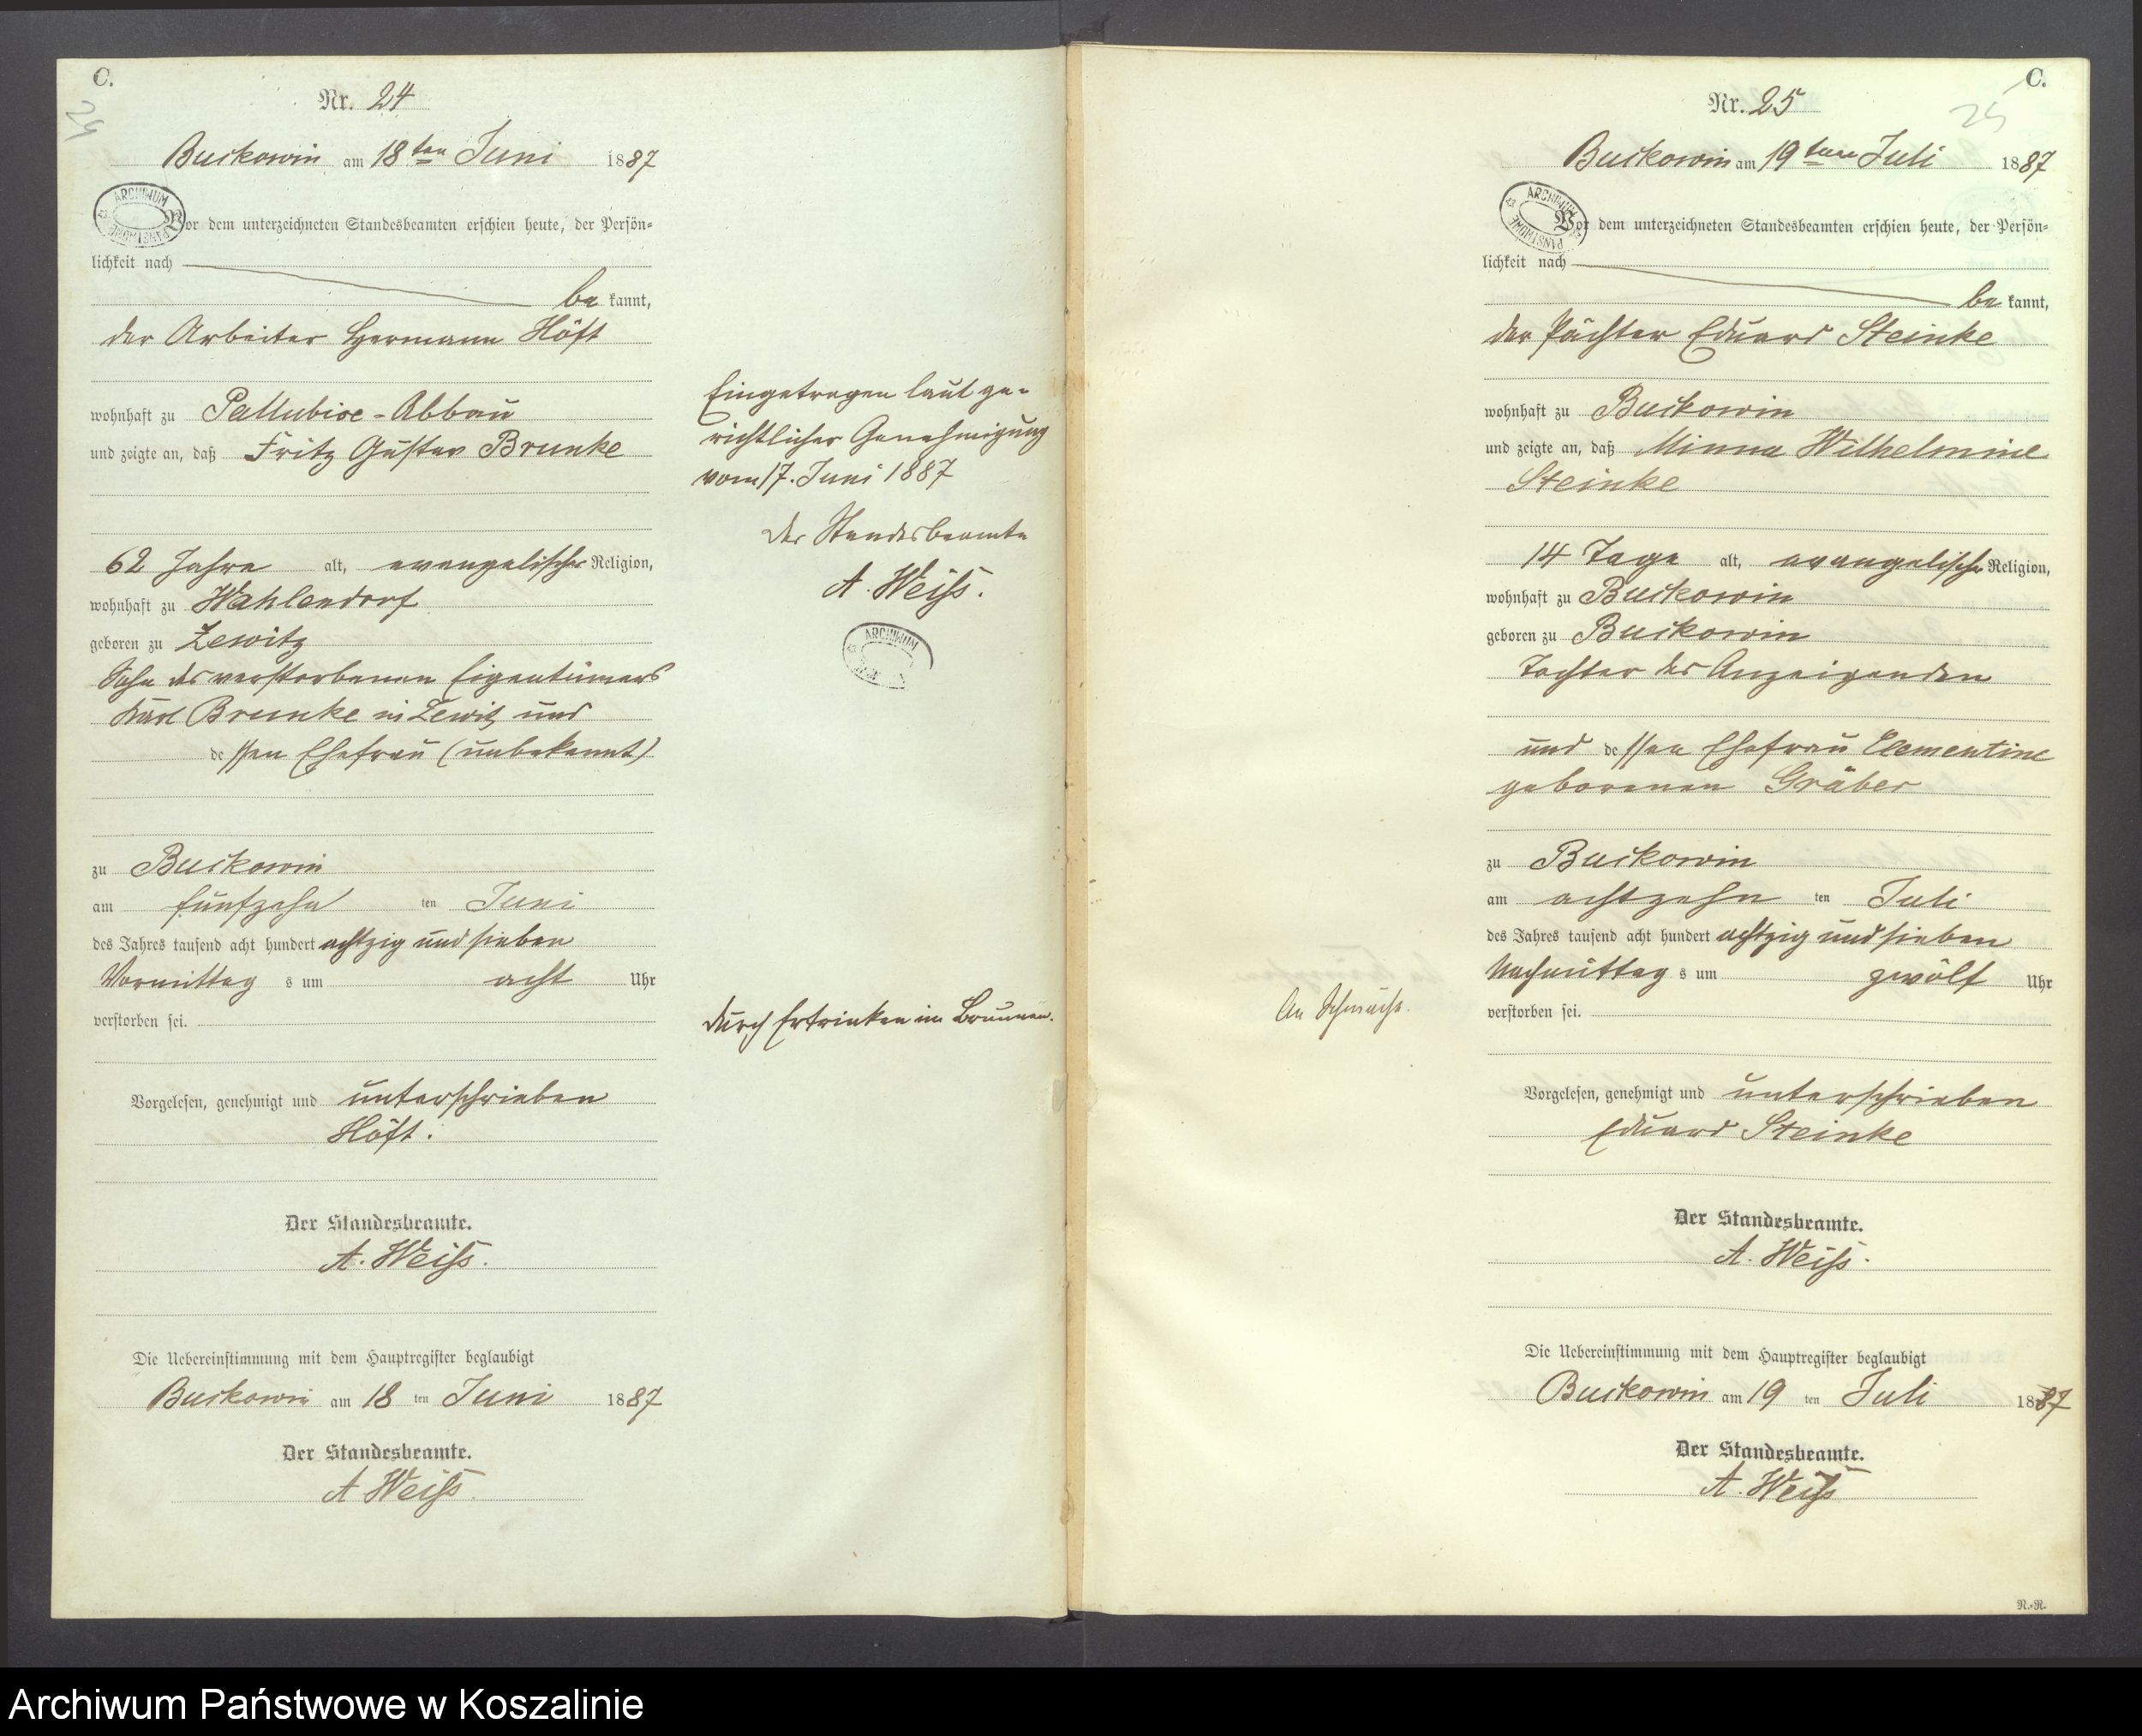 C.
24
Nr. 24
Buckowin am 18ten Juni 1887
ARCHIWUM
Vor dem unterzeichneten Standesbeamten erschien heute, der Persön-
lichkeit nach
be kannt,
der Arbeiter Hermann Höft
wohnhaft zu Pallubice-Abbau
und zeigte an, daß Fritz Gustav Brunke
62 Jahre alt, evangelischer Religion,
wohnhaft zu Wahlendorf
geboren zu Zewitz
Sohn des verstorbenen Eigentümers
Karl Brunke in Zewitz und
dessen Ehefrau (unbekannt)
zu Buckowin
am fünfzehn ten Juni
des Jahres tausend acht hundert achtzig und sieben
Vormittag s um acht Uhr
verstorben sei.
Vorgelesen, genehmigt und unterschrieben
Höft.
Der Standesbeamte.
A. Weiß.
Die Uebereinstimmung mit dem Hauptregister beglaubigt
Buckowin am 18 ten Juni 1887
Der Standesbeamte.
A Weiß.
Eingetragen laut ge-
richtlicher Genehmigung
vom 17. Juni 1887
Der Standesbeamte
A. Weiß.
ARCHIWUM
durch Ertrinken im Brunnen.
C.
25
Nr. 25
Buckowin am 19ten Juli 1887
ARCHIWUM
Vor dem unterzeichneten Standesbeamten erschien heute, der Persön-
lichkeit nach
be kannt,
der Pächter Eduard Steinke
wohnhaft zu Buckowin
und zeigte an, daß Minna Wilhelmine
Steinke
14 Tage alt, evangelischer Religion,
wohnhaft zu Buckowin
geboren zu Buckowin
Tochter des Anzeigenden
und dessen Ehefrau Clementine
geborenen Gräber
zu Buckowin
am achtzehn ten Juli
des Jahres tausend acht hundert achtzig und sieben
Nachmittag s um zwölf Uhr
verstorben sei.
An Schwäche.
Vorgelesen, genehmigt und unterschrieben
Eduard Steinke
Der Standesbeamte.
A. Weiß.
Die Uebereinstimmung mit dem Hauptregister beglaubigt
Buckowin am 19 ten Juli 1887
Der Standesbeamte.
A. Weiß
N.-R.
Archiwum Państwowe w Koszalinie